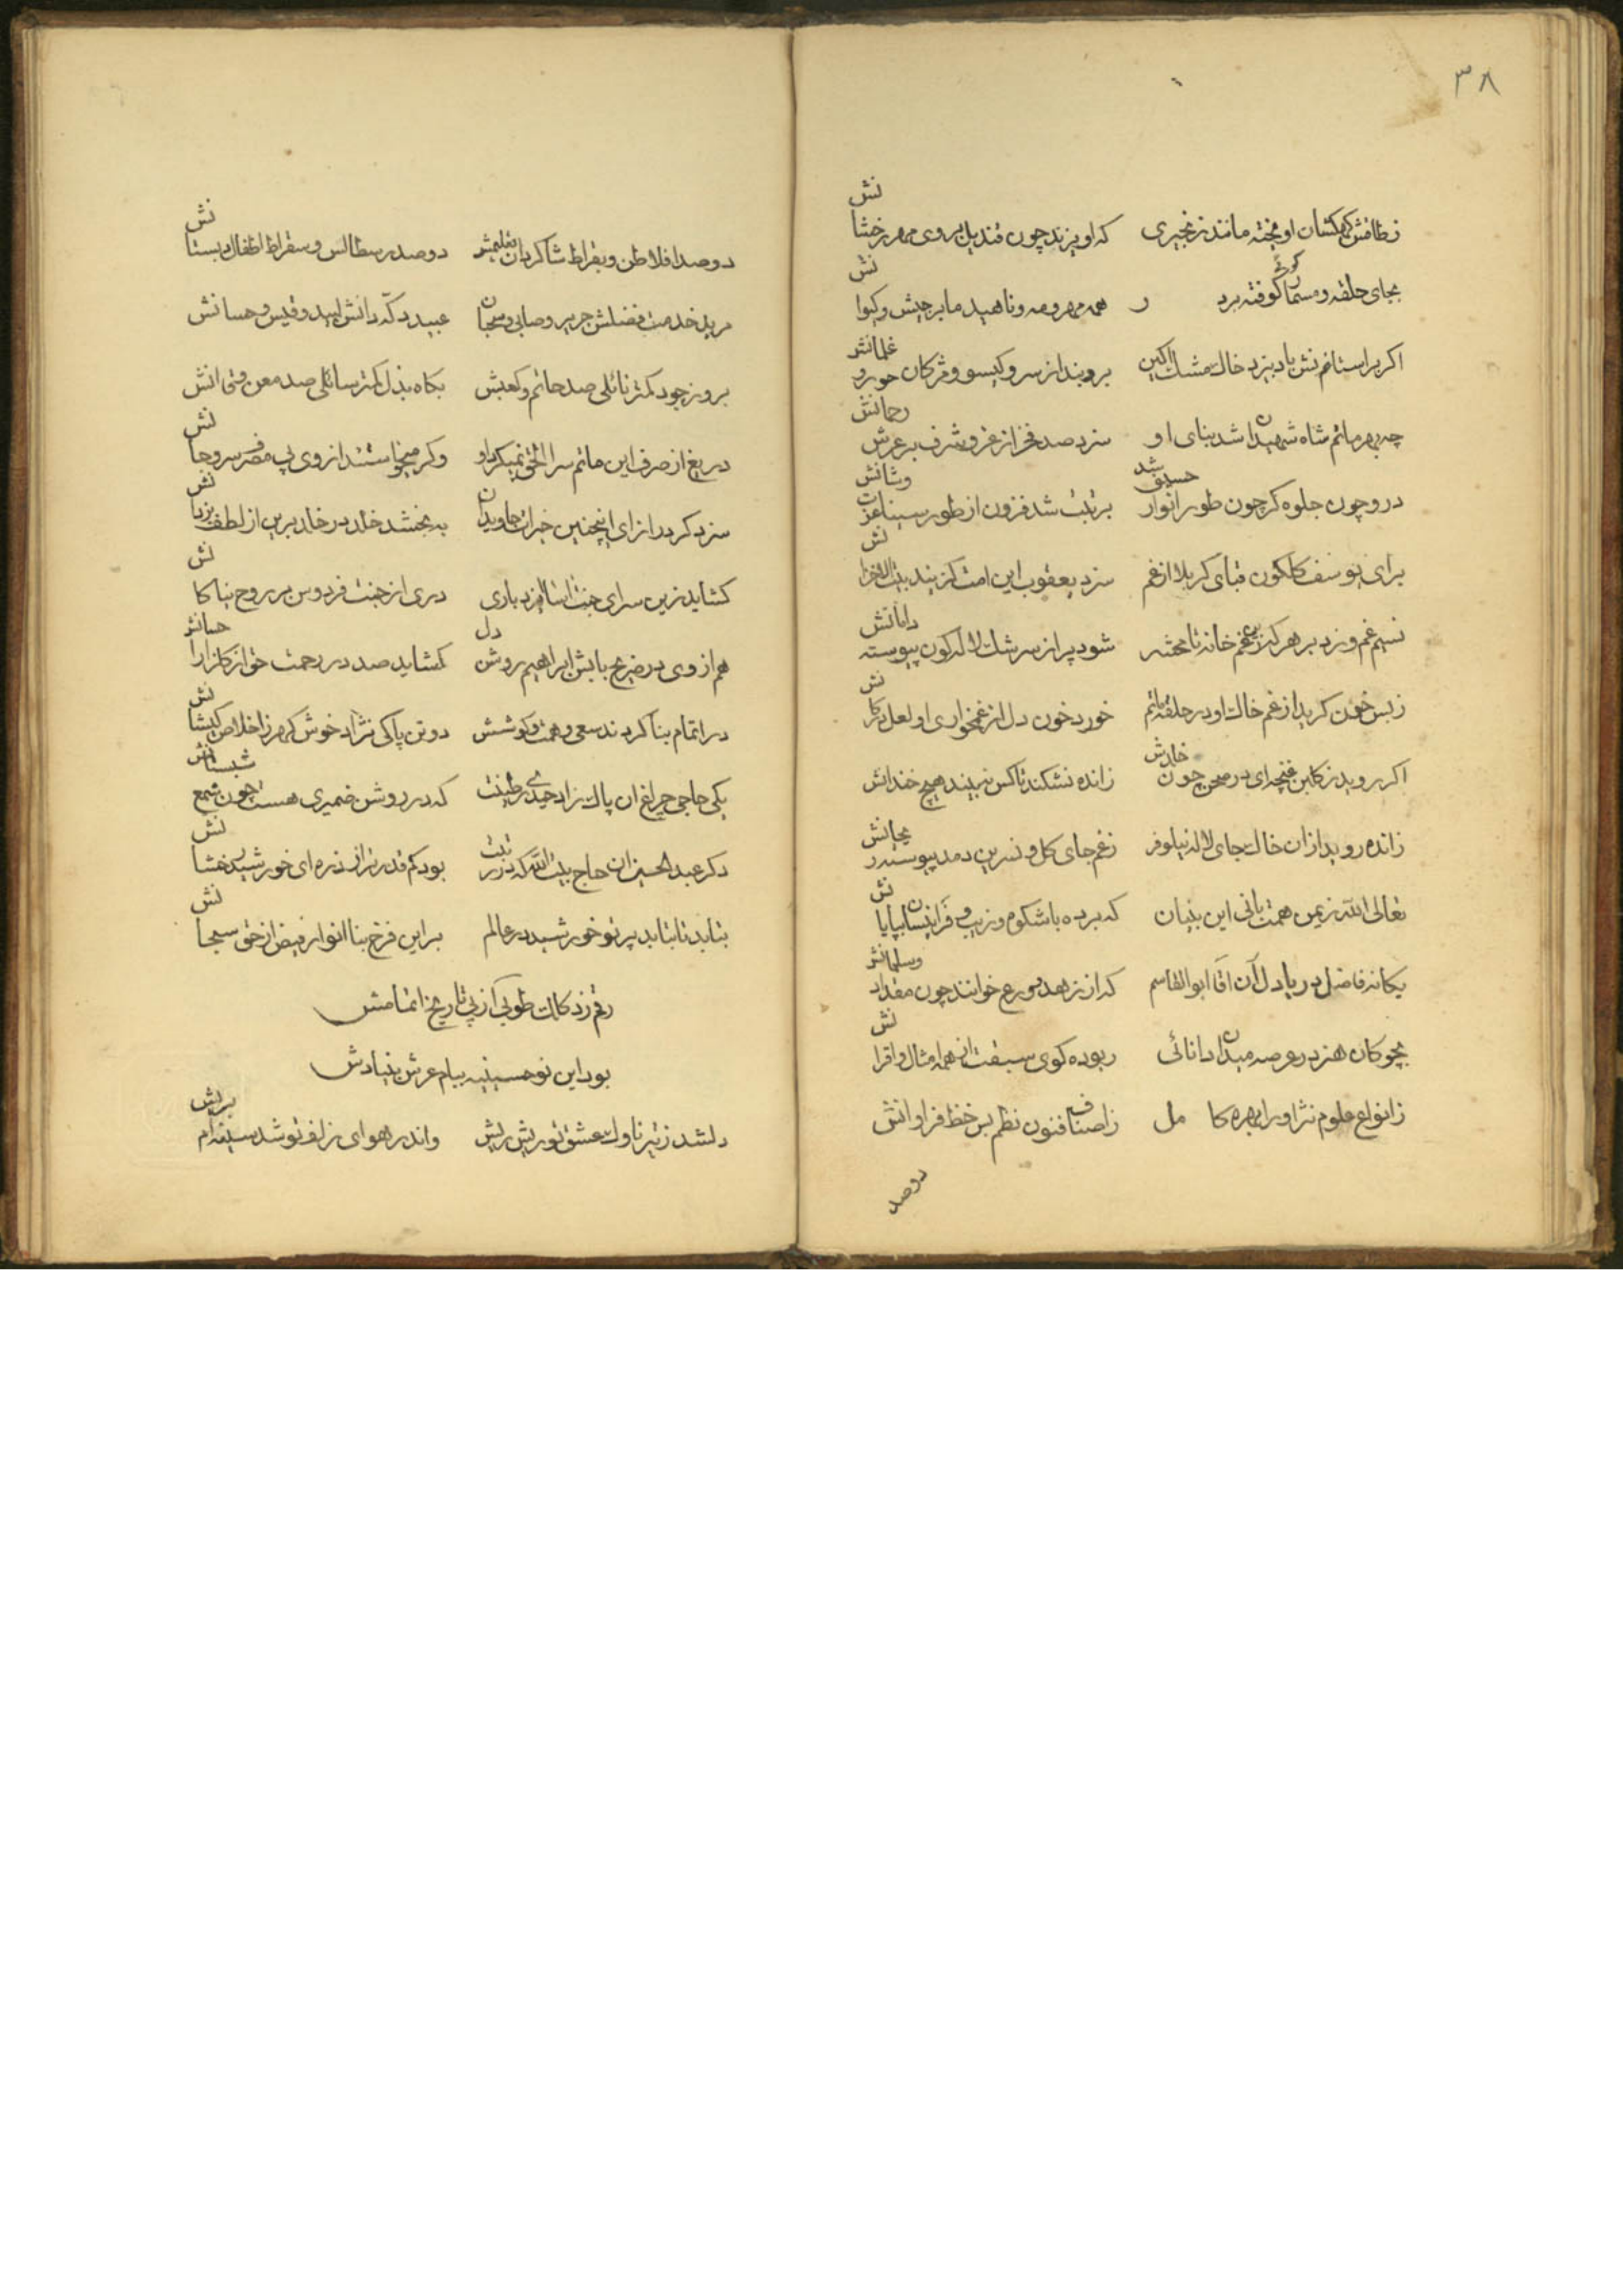 ۳۸
ز طاقش کهکشان اویخته مانند زنجیری که اویزند چون قندیل بر وی مهر رخشانش
بجای حلقه و مسمار کوفته بر در همه مهر و مه و ناهید ما برجیش و کیوانش
اکر بر استانم نش باد بیزد خاک مشک اکین بروبند از سر و کیسو و مژکان حور و غلمانش
چه بهر ماتم شاه شهیدان شد بنای او سزد صد فخر از عز و شرف بر عرش رحمانش
در و چون جلوه کر چون طور انوار حسینی شد برتبت شد فزون از طور سینا عزت وشانش
برای یوسف کلکون قبای کربلا از غم سزد یعقوب این امت کز بیند بیت الاحزانش
نسیم غم وزد بر هر که زین غم خانه تا محشر شود پر از سرشک لاله کون پیوسته دامانش
ز بس خون کرید از غم خاک او در حلقه ماتم خورد خون دل از غمخواری او لعل در کانش
اکر روید ز کلبن غنچه‌ای در صحن چون خلدش ز انده نشکند تا کس نبیند هیچ خندانش
ز انده روید از ان خاک بجای لاله نیلوفر ز غم جای کل و نسرین دمد پیوسته ریحانش
تعالی الله ز یمن همت بانی این بنیان که برده با شکوه و زیب و فر اینسان بپایانش
یکانه فاضل دریا دل آن اقا ابوالقاسم که از زهد و ورع خوانند چون مقداد وسلمانش
بچوکان هنر در عرصه میدان دانائی ربوده کوی سبقت از همه امثال و اقرانش
ز انواع علوم نثر او را بهره کامل ز اصناف فنون نظم بس حظ فراوانش
دوصد
دوصد افلاطن و بقراط شاکردان تعلیمش دوصد رسطالس و سقراط اطفال دبستانش
مرید خدمت فضلش جریر و صابی و سحبان عبید درکه دانش لبید و قیس و حسانش
بروز جود کمتر نائلی صد حاتم و کعبش بکاه بذل کمتر سائلی صد معن و قی انش
دریغ از صرف این ماتم سرا الحق نمیکرد او وکر میخواستند از وی پی مصرف سر و جانش
سزد کر در ازای اینچنین خیرات جاویدان به بخشد خلد در خلد برین از لطف یزدانش
کشاید زین سرای جنت اسا ایزد باری دری از جنت فردوس بر روح نیاکانش
هم از وی در ضریح بابش ابراهیم روشن دل کشاید صد در رحمت حق از کلزار احسانش
در اتمام بنا کردند سعی و همت و کوشش دو تن پاکی نژاد خوش کهر ز اخلاص کیشانش
یکی حاجی چراغ ان پاک زاد حیدری طینت که در روشن ضمیری هست چون شمع شبستانش
دکر عبدالحسین ان حاج بیت الله که در رتبت بود کم قدر تر از ذره‌ای خورشید رخشانش
بتابد تا بتابد پرتو خورشید در عالم بر این فرخ بنا انوار فیض از حق سبحانش
رقم زد کلک طوبی از پی تاریخ اتمامش
بود این نو حسینیه بیام عرش بنیادش
دلشد ز تیر ناوک عشق تو ریش ریش واندر هوای زلف تو شد سینه‌ام پریش